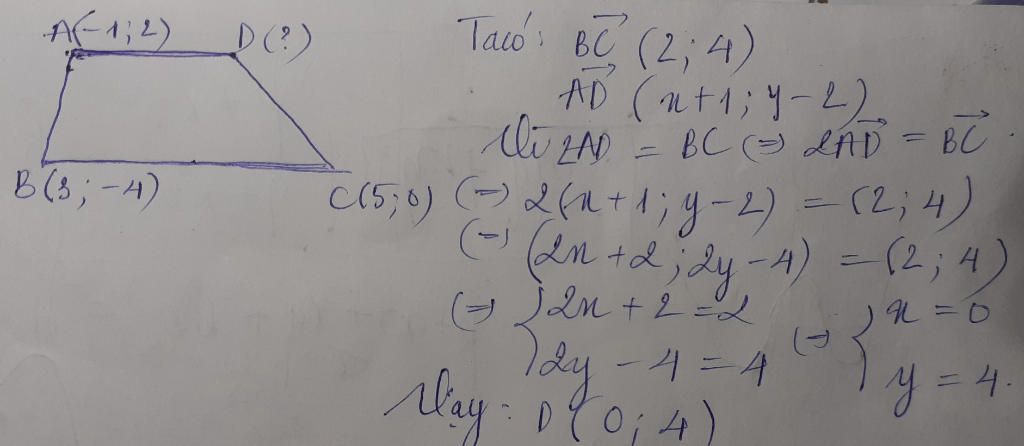 A(-1;2)
D(?)
B(3;-4)
C(5;0)
Ta có: $\overrightarrow{BC}$ (2;4)
$\overrightarrow{AD}$ (x+1;y-2)
Vì 2AD = BC (=) 2$\overrightarrow{AD}$ = $\overrightarrow{BC}$.
(=) 2(x+1;y-2) = (2;4)
(=) (2x+2;2y-4) = (2;4)
(=) { 2x+2=2
2y-4=4 (=) { x=0
y=4.
Vậy: D(0;4)